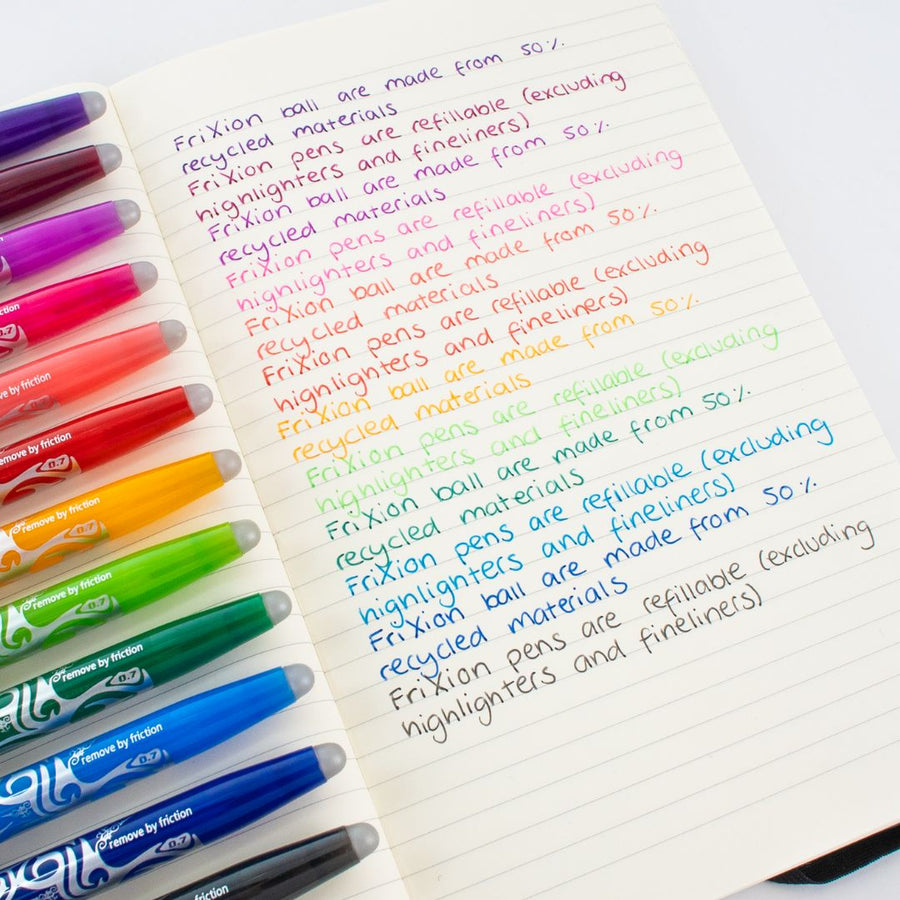 FriXion ball are made from 50%
recycled materials
FriXion pens are refillable (excluding
highlighters and fineliners)
FriXion ball are made from 50%
recycled materials
FriXion pens are refillable (excluding
highlighters and fineliners)
FriXion ball are made from 50%
recycled materials
FriXion pens are refillable (excluding
highlighters and fineliners)
FriXion ball are made from 50%
recycled materials
FriXion pens are refillable (excluding
highlighters and fineliners)
FriXion ball are made from 50%
recycled materials
FriXion pens are refillable (excluding
highlighters and fineliners)
FriXion ball are made from 50%
recycled materials
FriXion pens are refillable (excluding
highlighters and fineliners)
friction
0.7
by friction
remove by friction
0.7
remove by friction
remove by friction
0.7
remove by friction
0.7
remove by friction
0.7
remove by friction
0.7
friction